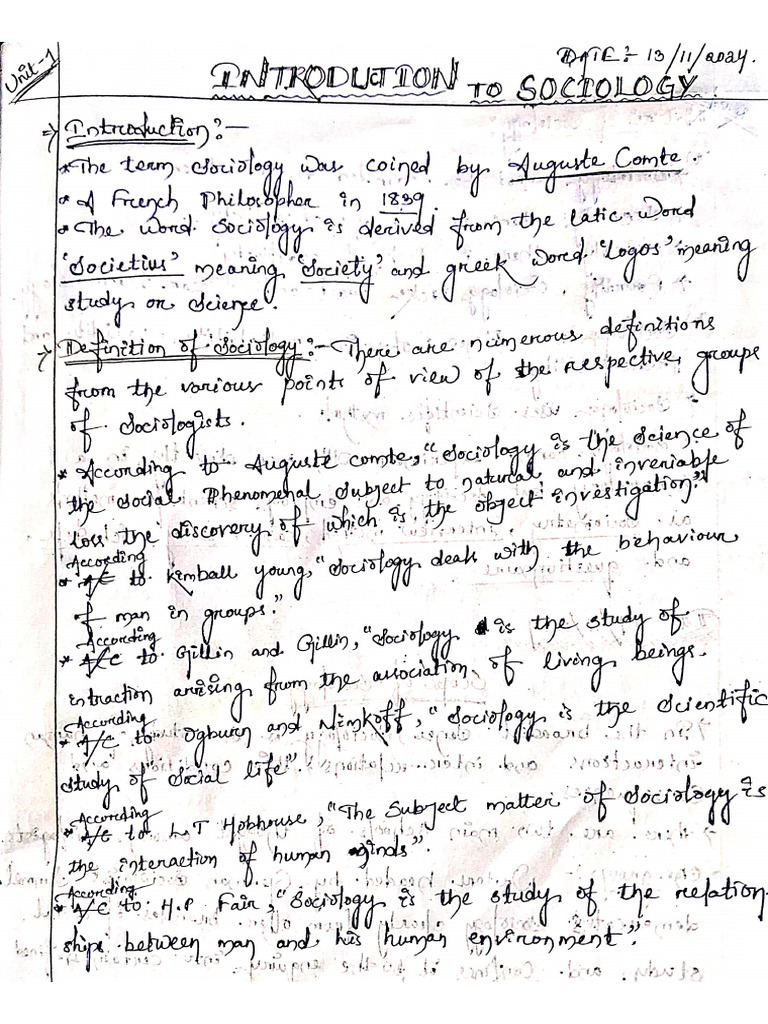 Unit-1
DATE:- 13/11/2024.
INTRODUTION TO SOCIOLOGY
⇒ Introduction:-
* The term Sociology was coined by Auguste Comte.
* A French Philosopher in 1839.
* The word Sociology is derived from the latic word
'Societius' meaning 'Society' and greek word 'Logos' meaning
study or Science.
⇒ Definition of Sociology:- There are numerous definitions
from the various points of view of the respective groups
of Sociologists.
* According to Auguste comte, "Sociology is the Science of
the Social Phenomenal Subject to natural and invariable
loss the discovery of which is the object investigation."
* According to Kimball young, "Sociology deals with the behaviour
of man in groups."
* According A/C to Gillin and Gillin, "Sociology is the study of
intraction arrising from the association of living beings.
* According A/C to Ogburn and Nimkoff, "Sociology is the Scientific
study of "Social life".
* According A/C to L.T Hobhouse, "The Subject matter of Sociology is
the interaction of human minds"
* According A/C to H.P Fair, "Sociology is the study of the relation-
ships between man and his human environment".